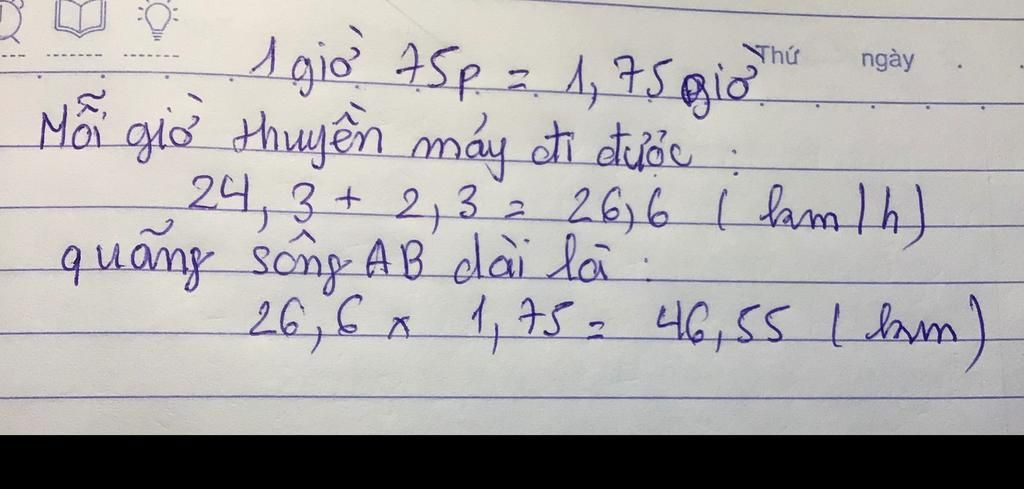 Thứ ngày
1 giờ 75p = 1,75 giờ
Mỗi giờ thuyền máy đi được :
24,3 + 2,3 = 26,6 ( km/h)
quãng sông AB dài là :
26,6 x 1,75 = 46,55 ( km )